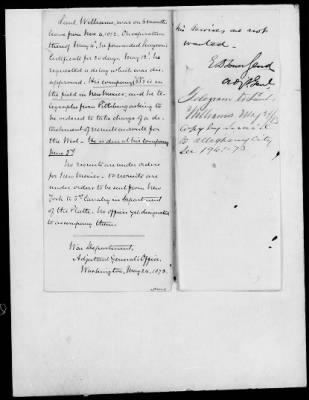 Lieut. Williams, was on 6 months
leave from Nov. 4, 1872. On expiration
thereof May 4, he forwarded Surgeon's
Certificate for 20 days. May 12, he
requested a delay which was dis-
approved. His company is in
the field in New Mexico, and he te-
legraphs from Pittsburg asking to
be ordered to take charge of a de-
tachment of recruits en route for
the West. He is due at his company
June 5th.
No recruits are under orders
for New Mexico. recruits are
under orders to be sent from New
York to 3d Cavalry in Department
of the Platte. No officer yet designated
to accompany them.
War Department,
Adjutant General's Office,
Washington, May 24, 1873.
his services are not
wanted.
E. D. Townsend
A.G.
Telegram to Lieut.
Williams May 24/73
copy by mail
to Allegheny City